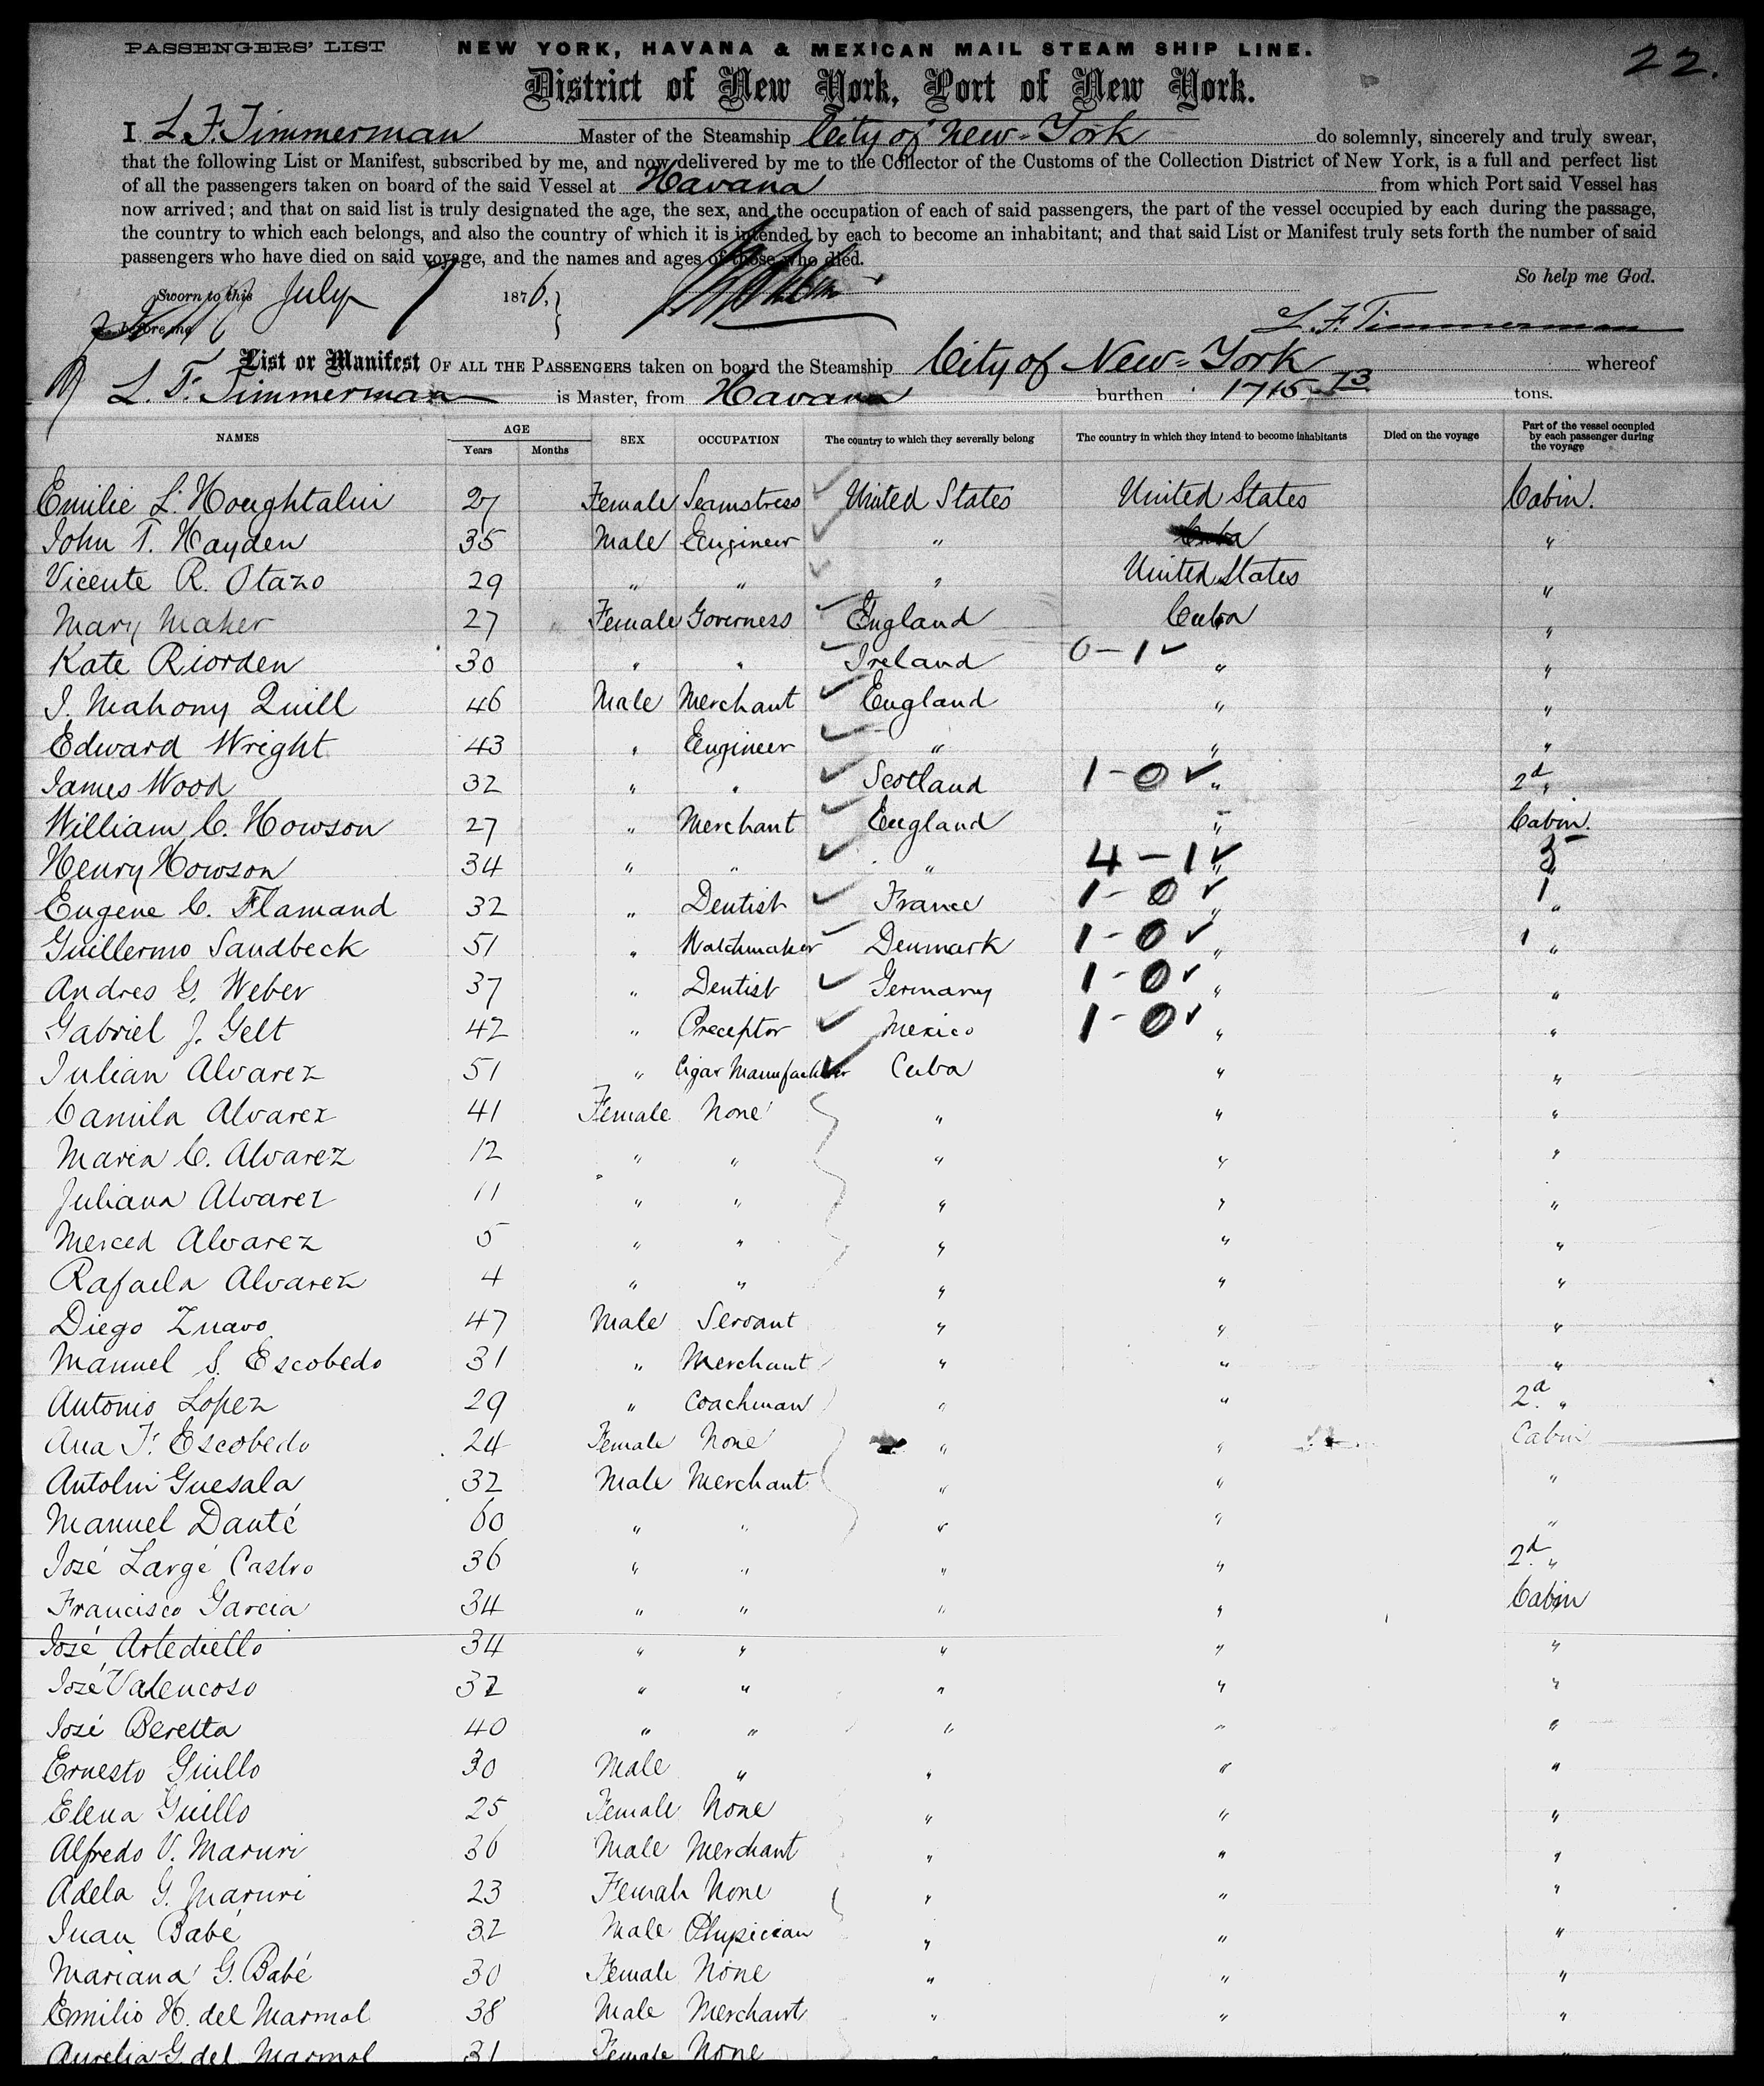 PASSENGERS' LIST NEW YORK, HAVANA & MEXICAN MAIL STEAM SHIP LINE. 22.
District of New York, Port of New York.
I L. F. Timmerman Master of the Steamship City of New-York do solemnly, sincerely and truly swear,
that the following List or Manifest, subscribed by me, and now delivered by me to the Collector of the Customs of the Collection District of New York, is a full and perfect list
of all the passengers taken on board of the said Vessel at Havana from which Port said Vessel has
now arrived; and that on said list is truly designated the age, the sex, and the occupation of each of said passengers, the part of the vessel occupied by each during the passage,
the country to which each belongs, and also the country of which it is intended by each to become an inhabitant; and that said List or Manifest truly sets forth the number of said
passengers who have died on said voyage, and the names and ages of those who died.
So help me God.
Sworn to this July 7 1876,
before me
L. F. Timmerman
List or Manifest OF ALL THE PASSENGERS taken on board the Steamship City of New-York whereof
L. F. Timmerman is Master, from Havana burthen 1715 73 tons.
NAMES AGE Years Months SEX OCCUPATION The country to which they severally belong The country in which they intend to become inhabitants Died on the voyage Part of the vessel occupied by each passenger during the voyage
Emilie L. Houghtalin 27 Female Seamstress United States United States Cabin.
John T. Hayden 35 Male Engineer " Cuba "
Vicente R. Otazo 29 " " " United States "
Mary Maher 27 Female Governess England Cuba "
Kate Riorden 30 " " Ireland 0-1 " "
J. Mahony Quill 46 Male Merchant England " "
Edward Wright 43 " Engineer " " "
James Wood 32 " " Scotland 1-0 " 2d "
William C. Howson 27 " Merchant England " Cabin.
Henry Howson 34 " " " 4-1 " "
Eugene C. Flamand 32 " Dentist France 1-0 " 1 "
Guillermo Sandbeck 51 " Watchmaker Denmark 1-0 " 1 "
Andres G. Weber 37 " Dentist Germany 1-0 " "
Gabriel J. Gelt 42 " Preceptor Mexico 1-0 " "
Julian Alvarez 51 " Cigar Manufacturer Cuba " "
Camila Alvarez 41 Female None " " "
Maria C. Alvarez 12 " " " " "
Juliana Alvarez 11 " " " " "
Merced Alvarez 5 " " " " "
Rafaela Alvarez 4 " " " " "
Diego Znavo 47 Male Servant " " "
Manuel S. Escobedo 31 " Merchant " " "
Antonio Lopez 29 " Coachman " " 2d "
Ana F. Escobedo 24 Female None " " Cabin
Antolin Guesala 32 Male Merchant " " "
Manuel Danté 60 " " " " "
José Largé Castro 36 " " " " 2d "
Francisco Garcia 34 " " " " Cabin
José Artediello 34 " " " " "
José Valencoso 32 " " " " "
José Beretta 40 " " " " "
Ernesto Guillo 30 Male " " " "
Elena Guillo 25 Female None " " "
Alfredo V. Maruri 36 Male Merchant " " "
Adela G. Maruri 23 Female None " " "
Juan Babé 32 Male Physician " " "
Mariana G. Babé 30 Female None " " "
Emilio H. del Marmol 38 Male Merchant " " "
Aurelia G del Marmol 31 Female None " "